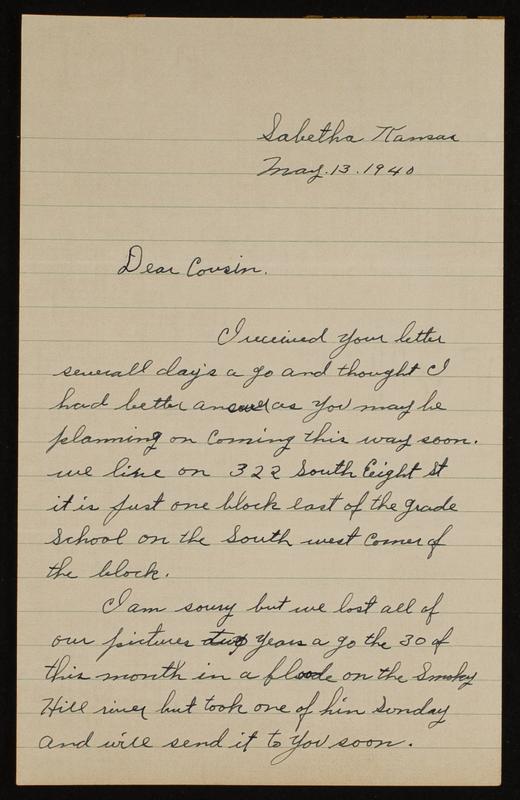 Sabetha Kansas
May. 13. 1940
Dear Cousin.
I received your letter
severall day's a go and thought I
had better answer as you may be
planning on coming this way soon.
we live on 322 South Eeight St
it is just one block east of the grade
School on the South west corner of
the block.
I am sorry but we lost all of
our pictures two years a go the 30 of
this month in a floode on the Smoky
Hill river but took one of him Sunday
and will send it to you soon.